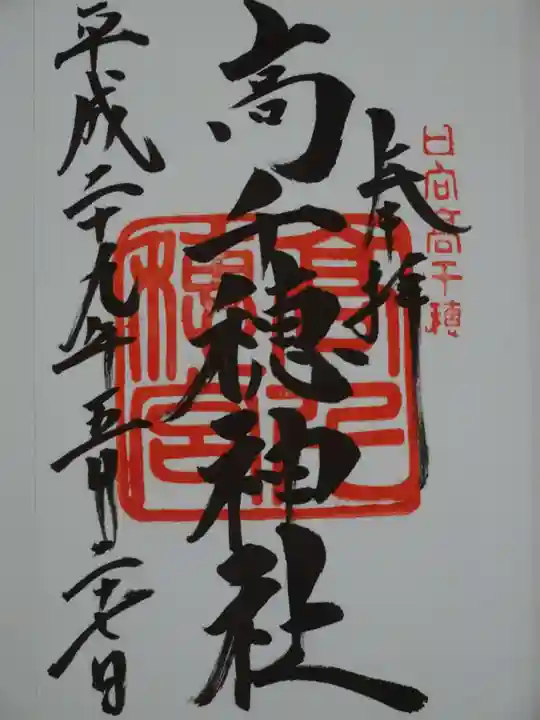 日向高千穂
奉拝
高千穂神社
高千穂宮
平成二十九年五月二十七日